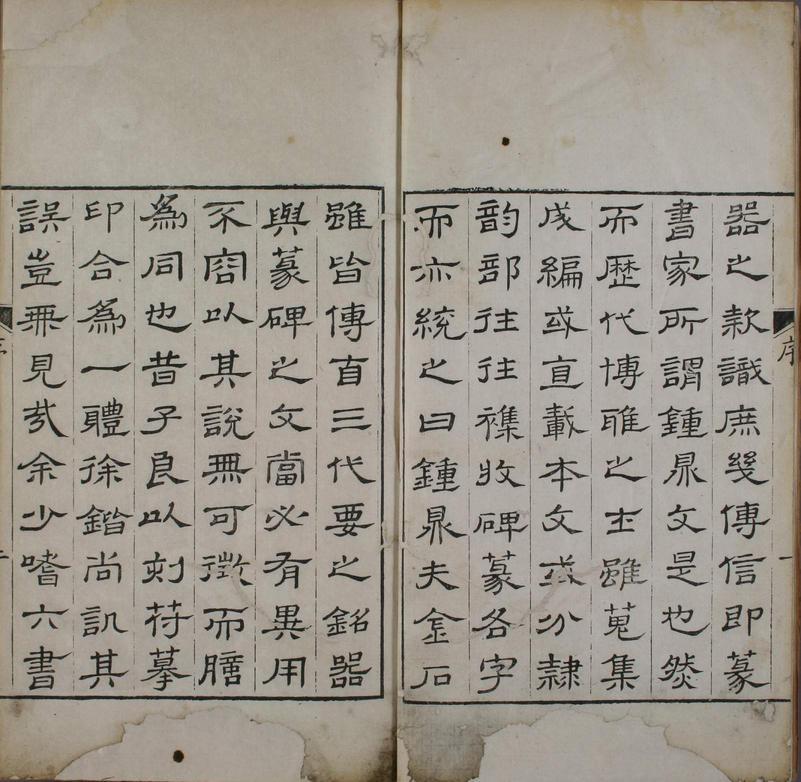 器之款識庶幾傳信即篆
書家所謂鍾鼎文是也然
而歷代博雅之士雖蒐集
成編或直載本文或分隸
韵部往往襍收碑篆各字
而亦統之曰鍾鼎夫金石
序
一
雖皆傳自三代要之銘器
與篆碑之文當必有異用
不容以其說無可徵而臆
為同也昔子良以刻符摹
印合為一體徐鍇尚訊其
誤豈無見哉余少嗜六書